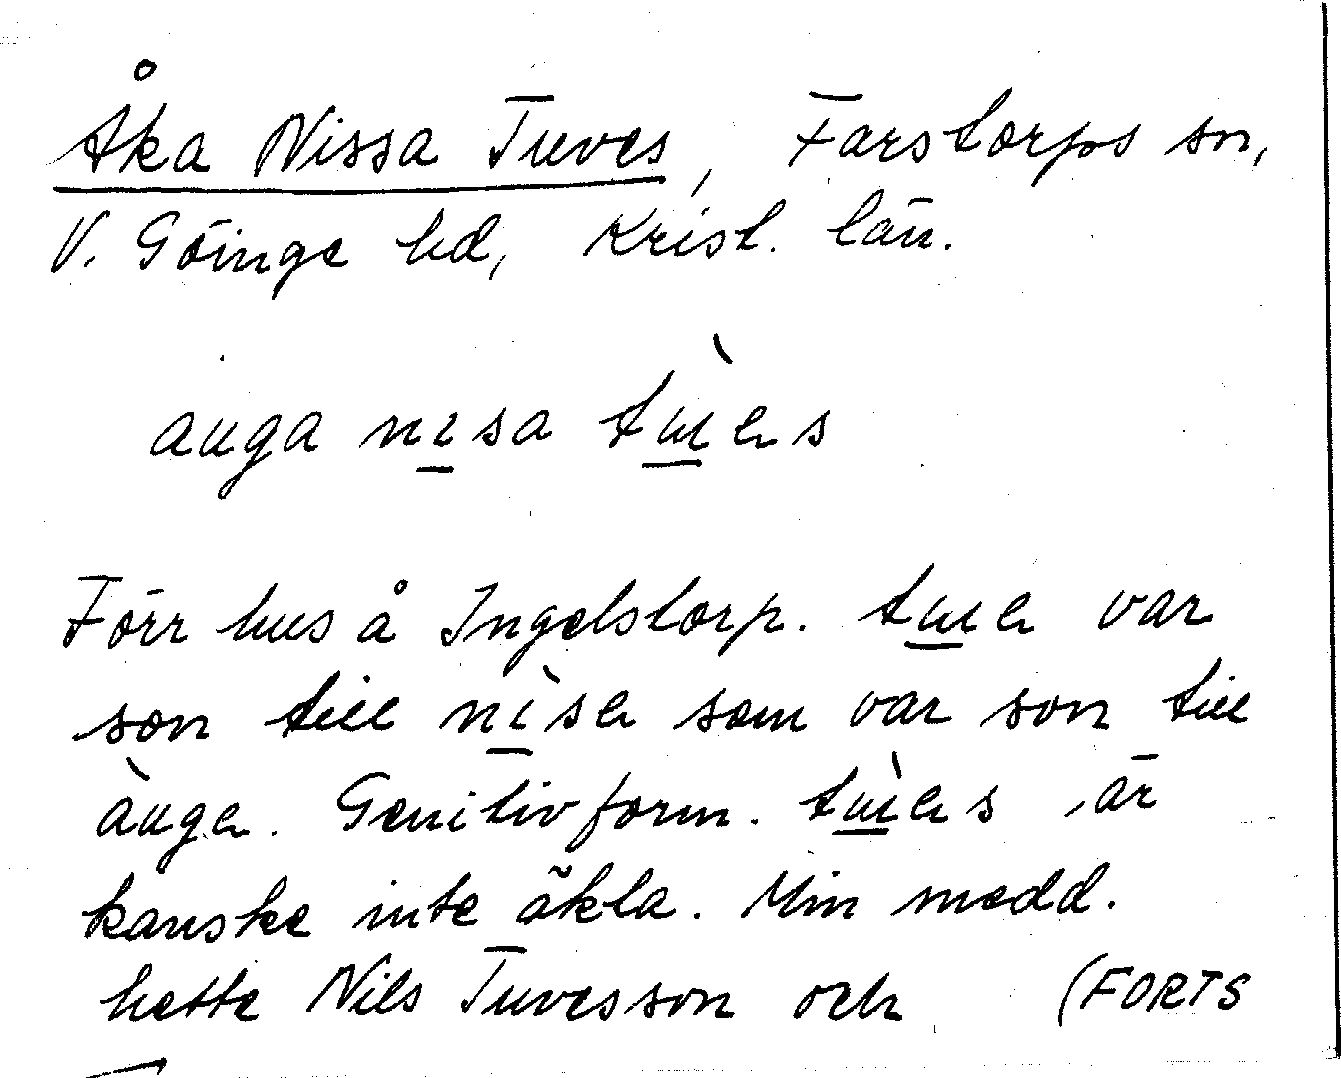 Åka Nissa Tuves, Farstorps sn,
V. Göinge hd, Krist. län.
auga nisa tùəs
Förr hus å Ingelstorp. tuə var
son till nìsə som var son till
àugə. Genitivform. tùəs är
kanske inte äkta. Min medd.
hette Nils Tuvesson och (FORTS